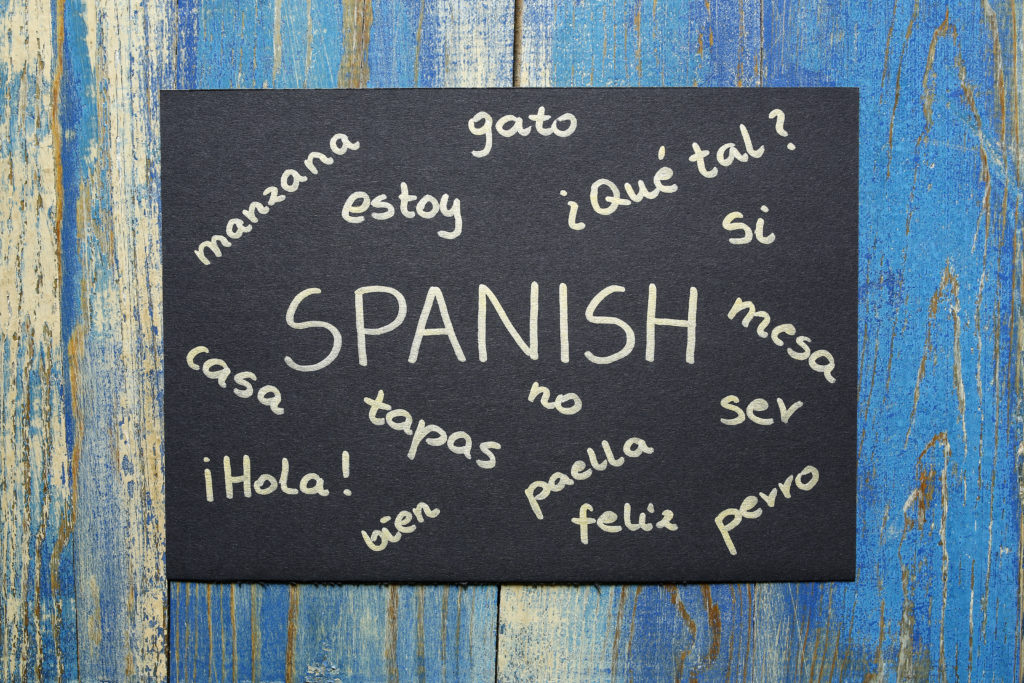 gato
manzana
¿Qué tal?
estoy
si
SPANISH
mesa
casa
no
tapas
ser
paella
¡Hola!
perro
feliz
bien